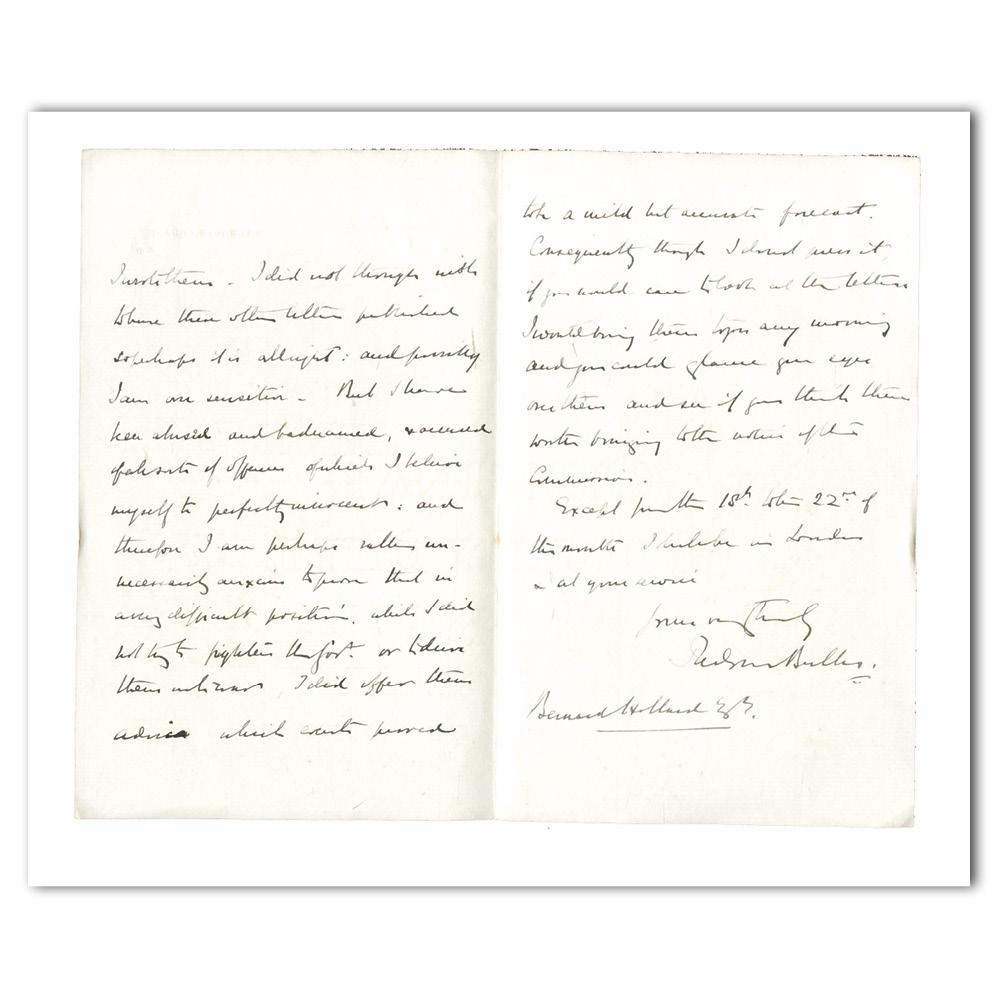 I wrote them – I did not though wish
to have these other letters published
so perhaps it is allright: and possibly
I am over sensitive – But I have
been abused and badnamed, & accused
of all sorts of offences of which I believe
myself to perfectly innocent: and
therefore I am perhaps rather un-
necessarily anxious to prove that in
a very difficult position, while I did
not try to frighten the Govt. or to drive
them I did offer them
advice which events proved
to be a mild but accurate forecast.
Consequently though I do not press it,
if you would care to look at the letters
I would bring them to you any morning
and you could glance your eyes
over them and see if you think them
worth bringing to the notice of the
Commission.
Except from the 18th to the 22nd of
this month I shall be in London
& at your service
Yours very truly
Redvers Buller.
Bernard Holland Esq.